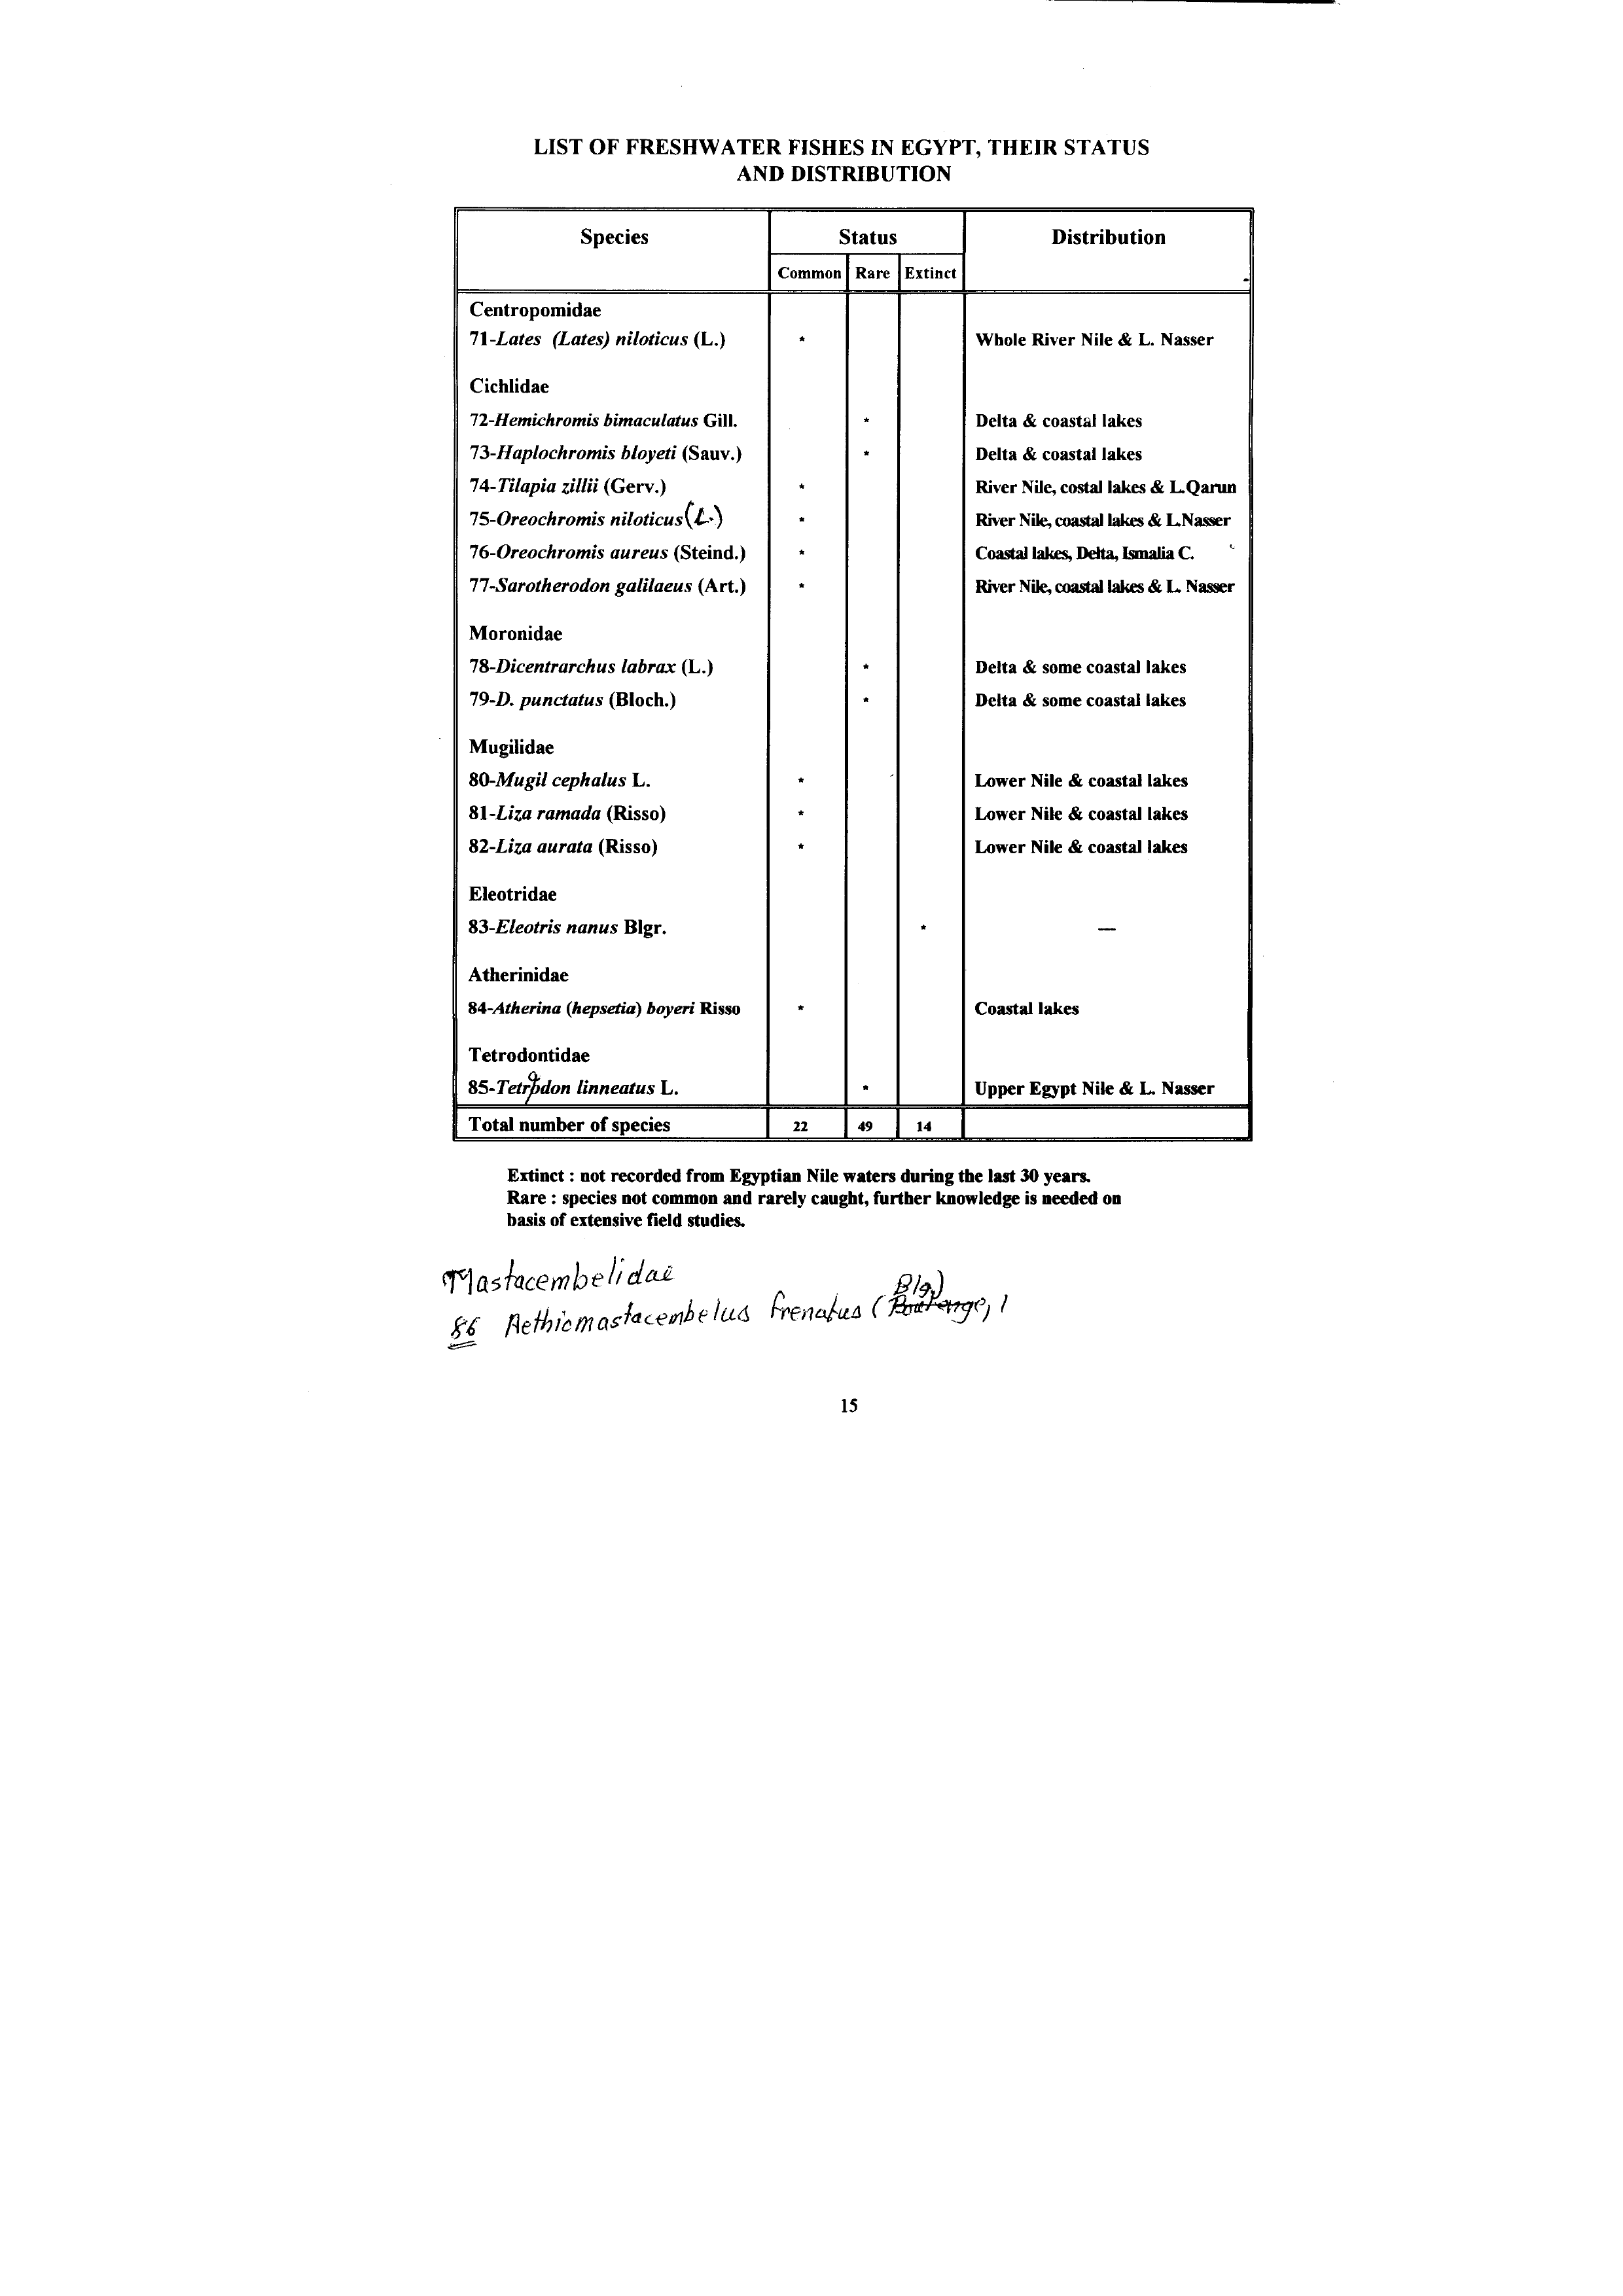 LIST OF FRESHWATER FISHES IN EGYPT, THEIR STATUS
AND DISTRIBUTION
Species Status Distribution
Common Rare Extinct
Centropomidae
71-Lates (Lates) niloticus (L.) * Whole River Nile & L. Nasser
Cichlidae
72-Hemichromis bimaculatus Gill. * Delta & coastal lakes
73-Haplochromis bloyeti (Sauv.) * Delta & coastal lakes
74-Tilapia zillii (Gerv.) * River Nile, costal lakes & L.Qarun
75-Oreochromis niloticus (L.) * River Nile, coastal lakes & L.Nasser
76-Oreochromis aureus (Steind.) * Coastal lakes, Delta, Ismalia C.
77-Sarotherodon galilaeus (Art.) * River Nile, coastal lakes & L. Nasser
Moronidae
78-Dicentrarchus labrax (L.) * Delta & some coastal lakes
79-D. punctatus (Bloch.) * Delta & some coastal lakes
Mugilidae
80-Mugil cephalus L. * Lower Nile & coastal lakes
81-Liza ramada (Risso) * Lower Nile & coastal lakes
82-Liza aurata (Risso) * Lower Nile & coastal lakes
Eleotridae
83-Eleotris nanus Blgr. * —
Atherinidae
84-Atherina (hepsetia) boyeri Risso * Coastal lakes
Tetrodontidae
85-Tetrodon linneatus L. * Upper Egypt Nile & L. Nasser
Total number of species 22 49 14
Extinct : not recorded from Egyptian Nile waters during the last 30 years.
Rare : species not common and rarely caught, further knowledge is needed on
basis of extensive field studies.
Mastacembelidae
86 Aethiomastacembelus frenatus (Blg)
15